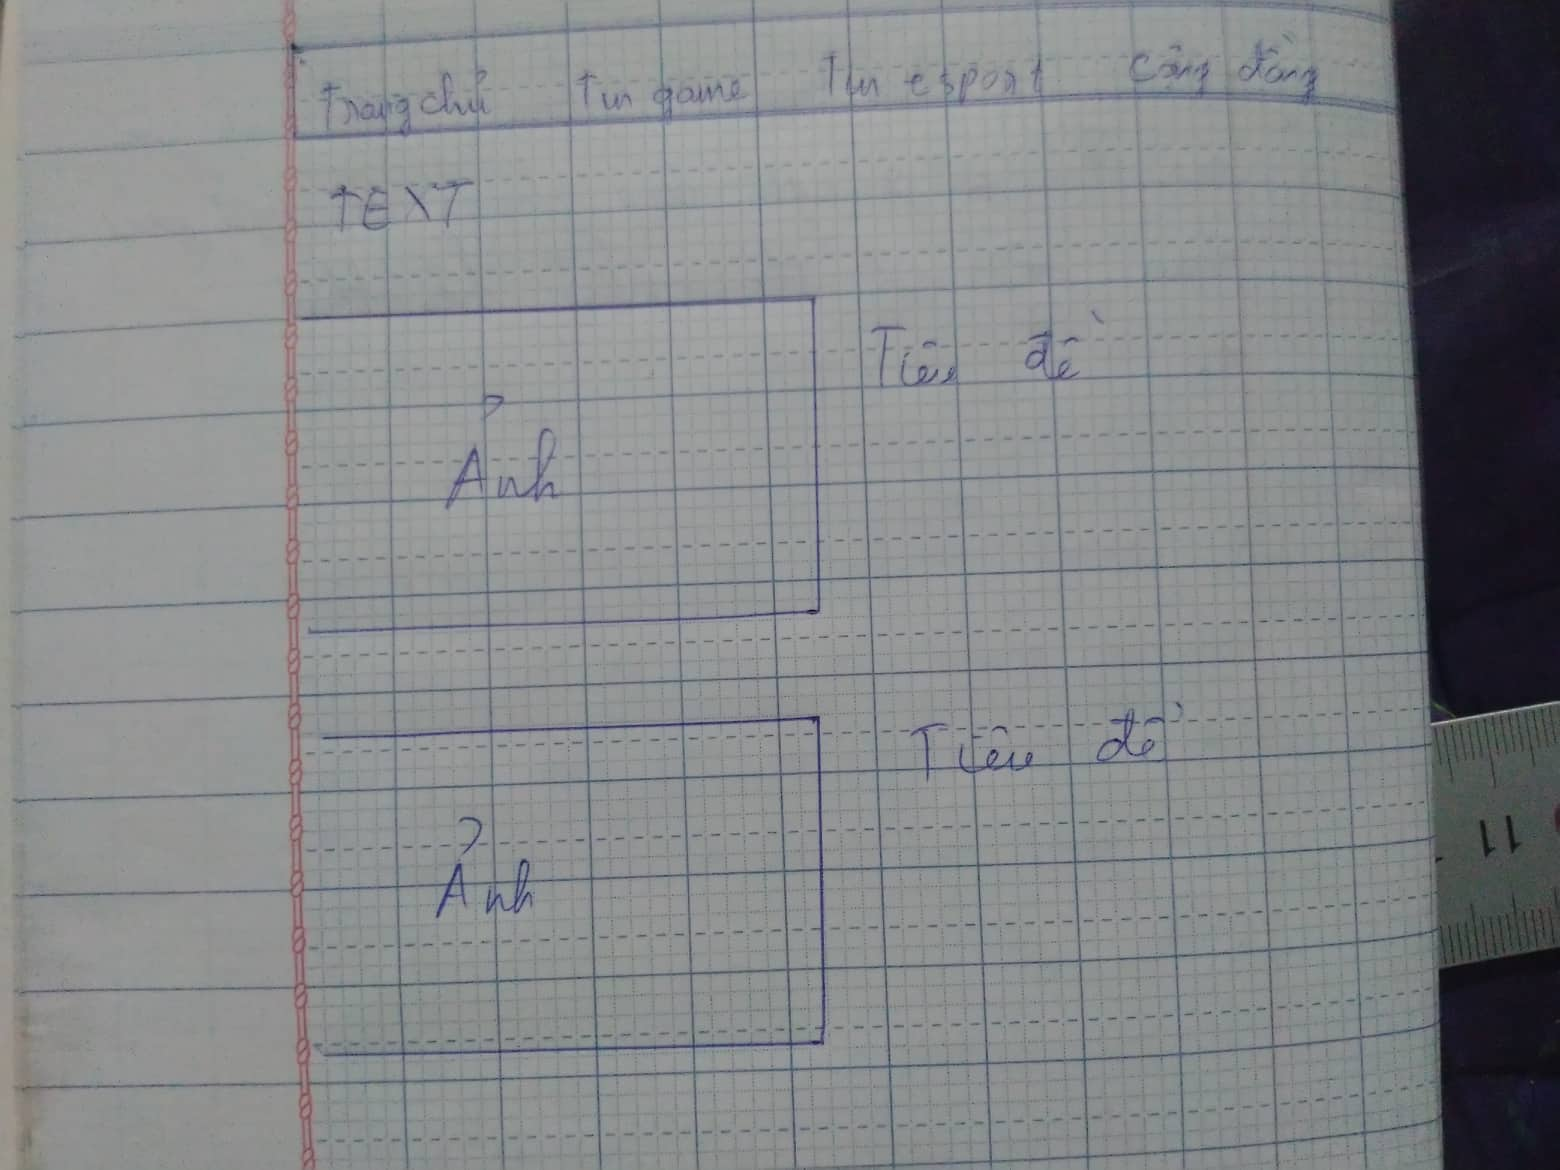 Trang chủ Tin game Tin esport Cộng đồng
TEXT
Ảnh
Tiêu đề
Ảnh
Tiêu đề
11